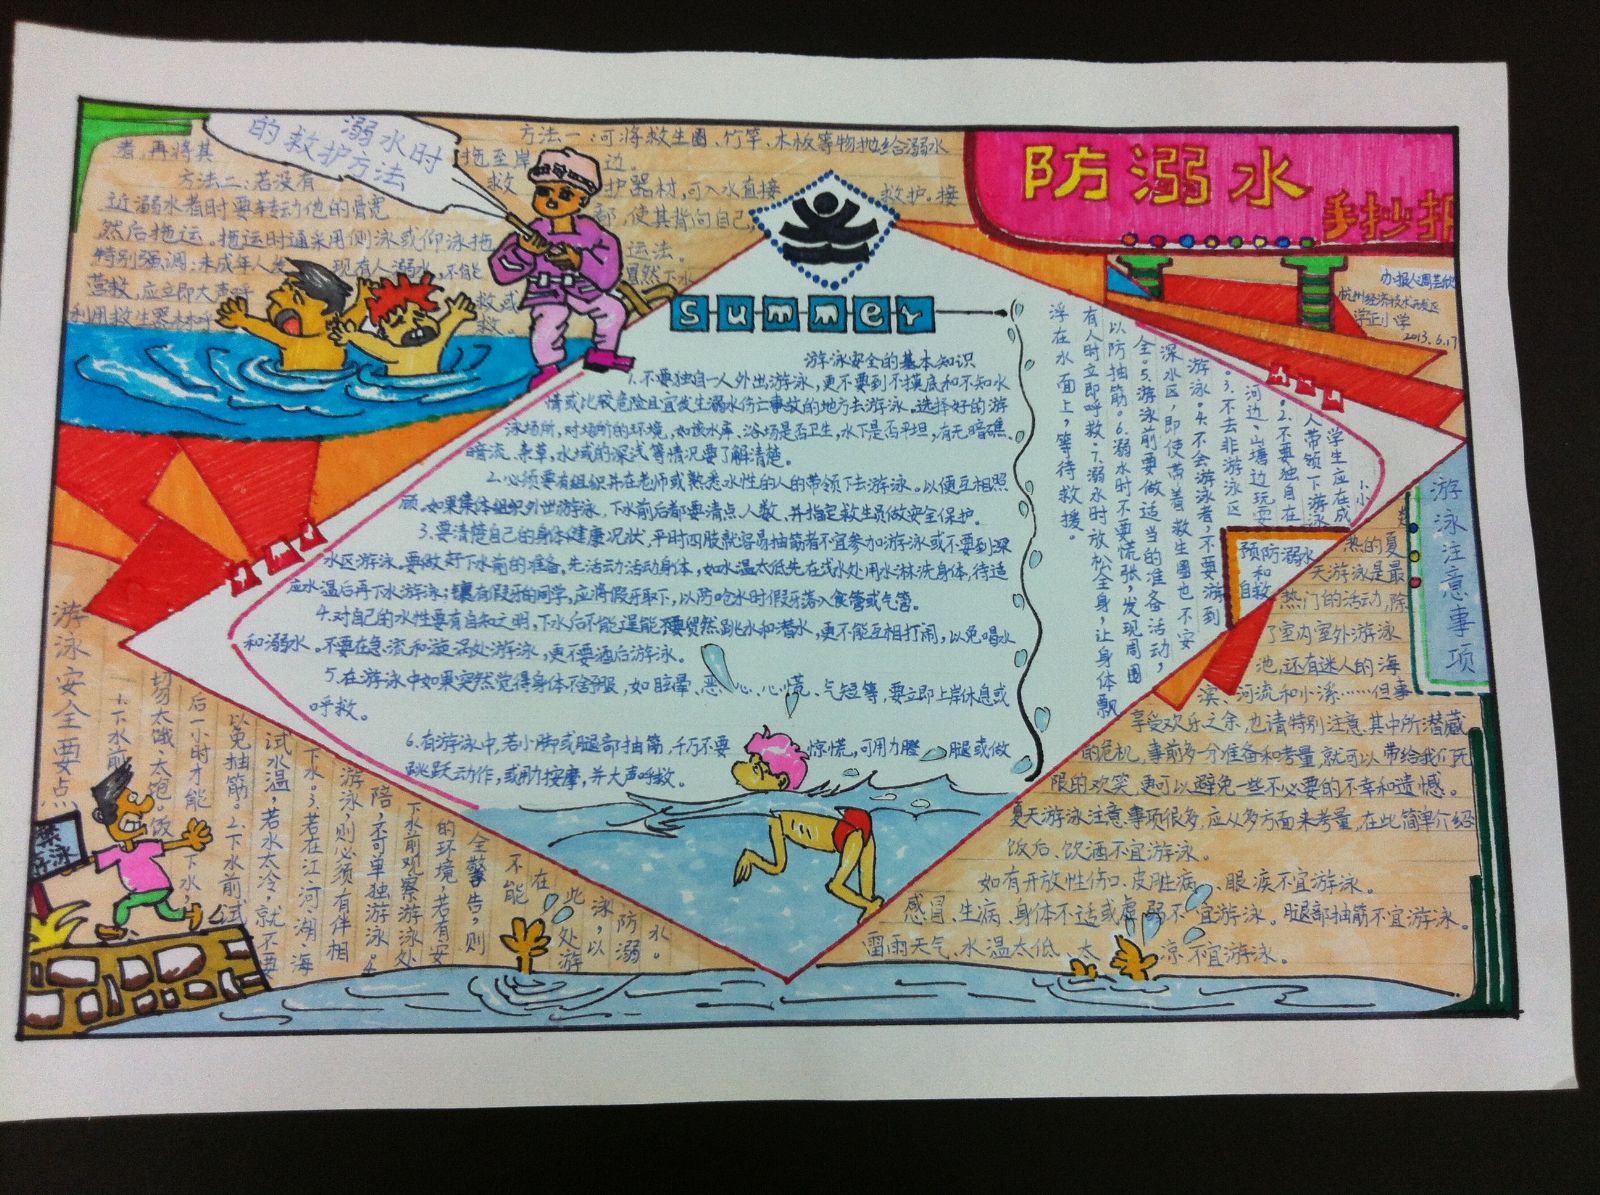 防溺水
手抄报
办报人周芸欣
杭州经济技术开发区
学正小学
2013.6.17
溺水时
的救护方法
方法一:可将救生圈、竹竿、木板等物抛给溺水
者,再将其拖至岸边。
方法二:若没有救护器材,可入水直接救护。接
近溺水者时要转动他的髋部,使其背向自己,
然后拖运。拖运时通采用侧泳或仰泳拖运法。
特别强调:未成年人发现有人溺水,不能冒然下水
营救,应立即大声呼救或
利用救生器材呼救。
summer
游泳安全的基本知识
1.不要独自一人外出游泳,更不要到不摸底和不知水
情或比较危险且宜发生溺水伤亡事故的地方去游泳。选择好的游
泳场所,对场所的环境,如该水库、浴场是否卫生,水下是否平坦,有无暗礁、
暗流、杂草,水域的深浅等情况要了解清楚。
2.必须要有组织并在老师或熟悉水性的人的带领下去游泳。以便互相照
顾。如果集体组织外出游泳,下水前后都要清点人数,并指定救生员做安全保护。
3.要清楚自己的身体健康况状,平时四肢就容易抽筋者不宜参加游泳或不要到深
水区游泳。要做好下水前的准备,先活动活动身体,如水温太低先在浅水处用水淋洗身体,待适
应水温后再下水游泳;镶有假牙的同学,应将假牙取下,以防呛水时假牙落入食管或气管。
4.对自己的水性要有自知之明,下水后不能逞能不要贸然跳水和潜水,更不能互相打闹,以免喝水
和溺水。不要在急流和漩涡处游泳,更不要酒后游泳。
5.在游泳中如果突然觉得身体不舒服,如眩晕、恶心、心慌、气短等,要立即上岸休息或
呼救。
6.有游泳中,若小脚或腿部抽筋,千万不要惊慌,可用力蹬腿或做
跳跃动作,或用力按摩,并大声呼救。
预防溺水
和
自救
1.小学生应在成
人带领下游泳
。2.不要独自在
河边、山塘边玩耍
。3.不去非游泳区
游泳。4.不会游泳者,不要游到
深水区,即使带着救生圈也不安
全。5.游泳前要做适当的准备活动,
以防抽筋。6.溺水时不要慌张,发现周围
有人时立即呼救。7.溺水时放松全身,让身体飘
浮在水面上,等待救援。
游泳注意事项
炎热的夏
天游泳是最
热门的活动,除
了室内室外游泳
池,还有迷人的海
滨、河流和小溪……但事
享受欢乐之余,也请特别注意,其中所潜藏
的危机,事前多一分准备和考量,就可以带给我们无
限的欢笑,更可以避免一些不必要的不幸和遗憾。
夏天游泳注意事项很多,应从多方面来考量,在此简单介绍
饭后、饮酒不宜游泳。
如有开放性伤口、皮脏病、眼疾不宜游泳。
感冒、生病、身体不适或虚弱不宜游泳。腿部抽筋不宜游泳。
雷雨天气、水温太低、太凉不宜游泳。
游泳安全要点
禁
游泳
1.下水前
切太饿、太饱。饭
后一小时才能下水,
以免抽筋。2.下水前试
试水温,若水太冷,就不要
下水。3.若在江、河、湖、海
游泳,则必须有伴相
陪,不可单独游泳。4.
下水前观察游泳处
的环境,若有安
全警告,则
不能
在此处游
泳,以
防溺
水。